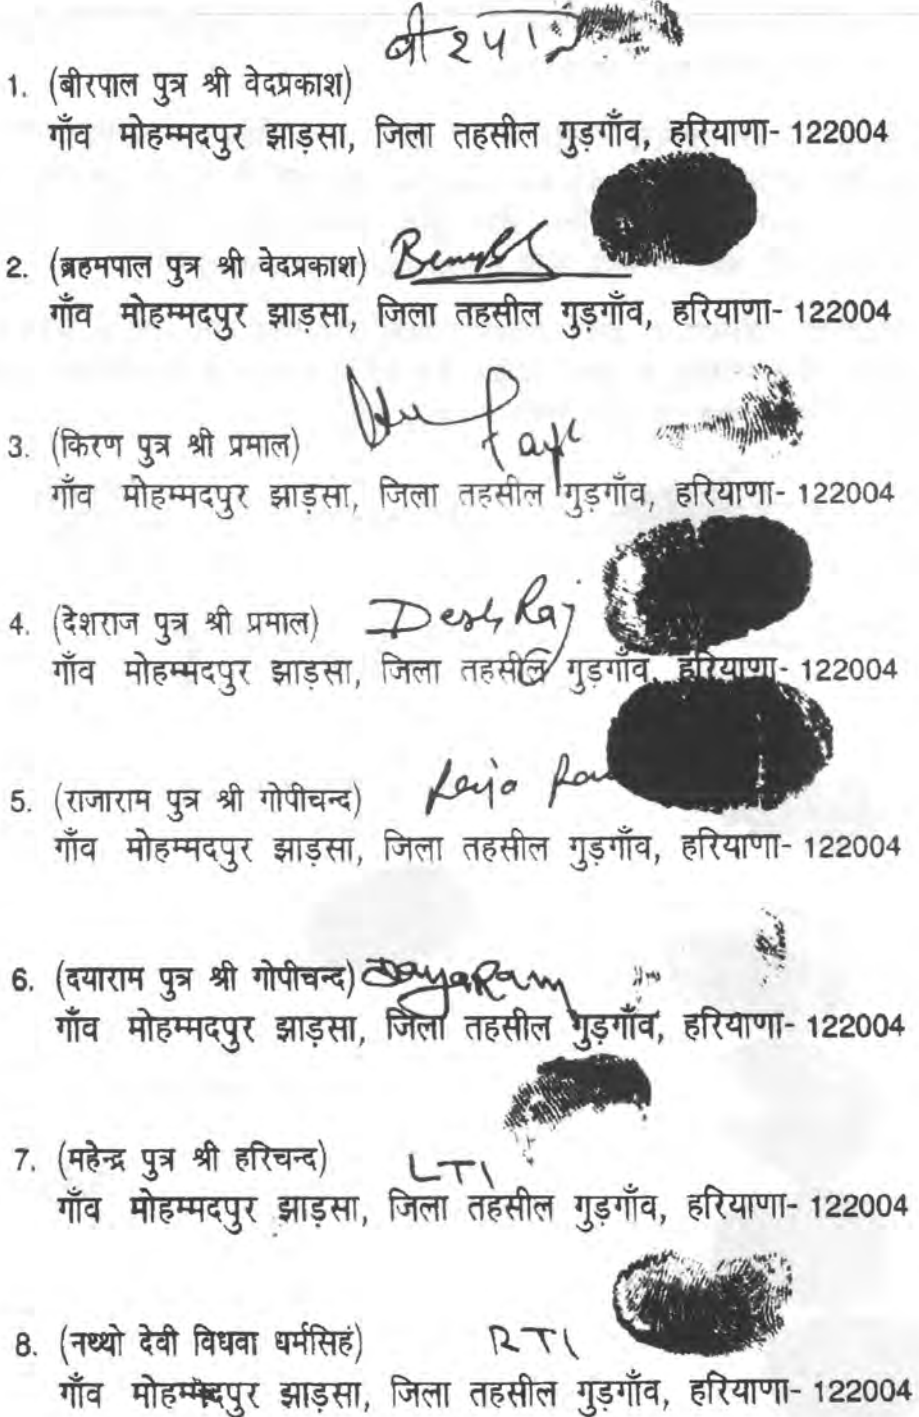 बीरपाल
1. (बीरपाल पुत्र श्री वेदप्रकाश)
गाँव मोहम्मदपुर झाड़सा, जिला तहसील गुड़गाँव, हरियाणा- 122004
2. (ब्रहमपाल पुत्र श्री वेदप्रकाश)
गाँव मोहम्मदपुर झाड़सा, जिला तहसील गुड़गाँव, हरियाणा- 122004
3. (किरण पुत्र श्री प्रमाल)
गाँव मोहम्मदपुर झाड़सा, जिला तहसील गुड़गाँव, हरियाणा- 122004
4. (देशराज पुत्र श्री प्रमाल) Desh Raj
गाँव मोहम्मदपुर झाड़सा, जिला तहसील गुड़गाँव, हरियाणा- 122004
5. (राजाराम पुत्र श्री गोपीचन्द)
गाँव मोहम्मदपुर झाड़सा, जिला तहसील गुड़गाँव, हरियाणा- 122004
6. (दयाराम पुत्र श्री गोपीचन्द) DayaRam
गाँव मोहम्मदपुर झाड़सा, जिला तहसील गुड़गाँव, हरियाणा- 122004
7. (महेन्द्र पुत्र श्री हरिचन्द) LTI
गाँव मोहम्मदपुर झाड़सा, जिला तहसील गुड़गाँव, हरियाणा- 122004
8. (नथ्थो देवी विधवा धर्मसिहं) RTI
गाँव मोहम्मदपुर झाड़सा, जिला तहसील गुड़गाँव, हरियाणा- 122004